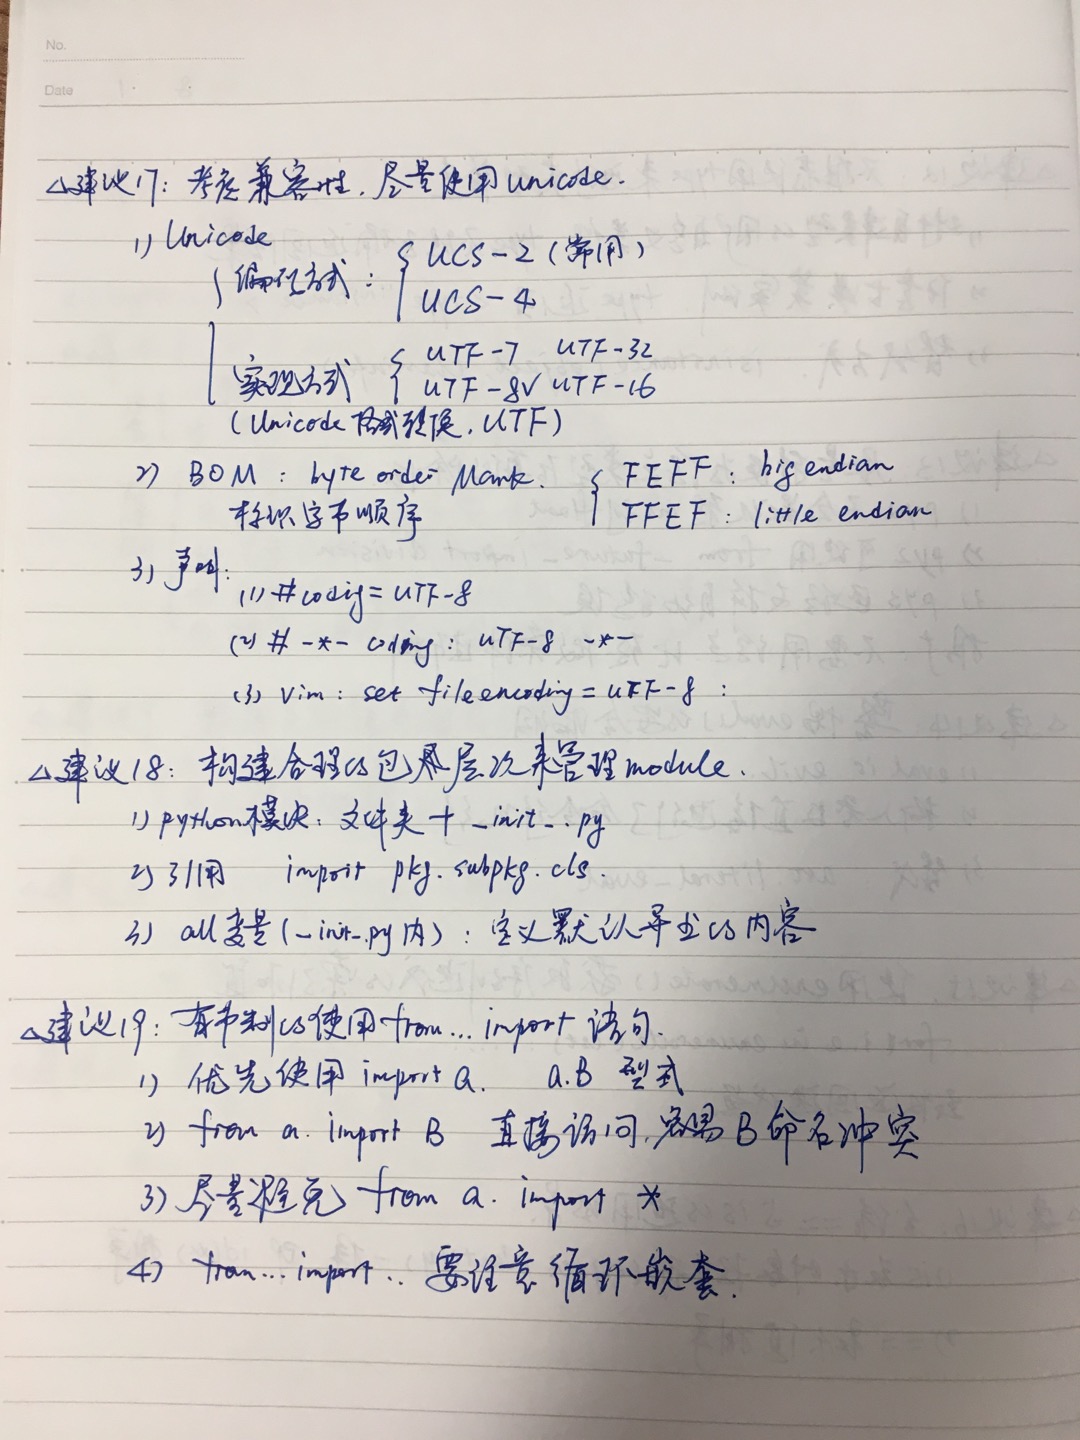 No.
Date
△建议17：考虑兼容性，尽量使用unicode.
1) Unicode
编码方式： UCS-2 (常用)
UCS-4
实现方式 UTF-7 UTF-32
UTF-8√ UTF-16
(Unicode格式转换，UTF)
2) BOM : byte order Mark. FEFF : big endian
标识字节顺序 FFEF : little endian
3) 声明：
(1) #coding=UTF-8
(2) # -*- coding: UTF-8 -*-
(3) vim : set fileencoding=UTF-8 :
△建议18：构建合理的包层次来管理module.
1) python模块：文件夹 + _init_.py
2) 引用 import pkg.subpkg.cls.
3) all变量(_init_.py内)：定义默认导出的内容
△建议19：有节制的使用from... import 语句.
1) 优先使用 import a. a.B 型式
2) from a. import B 直接访问，容易B命名冲突
3) 尽量避免 from a. import *
4) from... import.. 要注意循环嵌套.